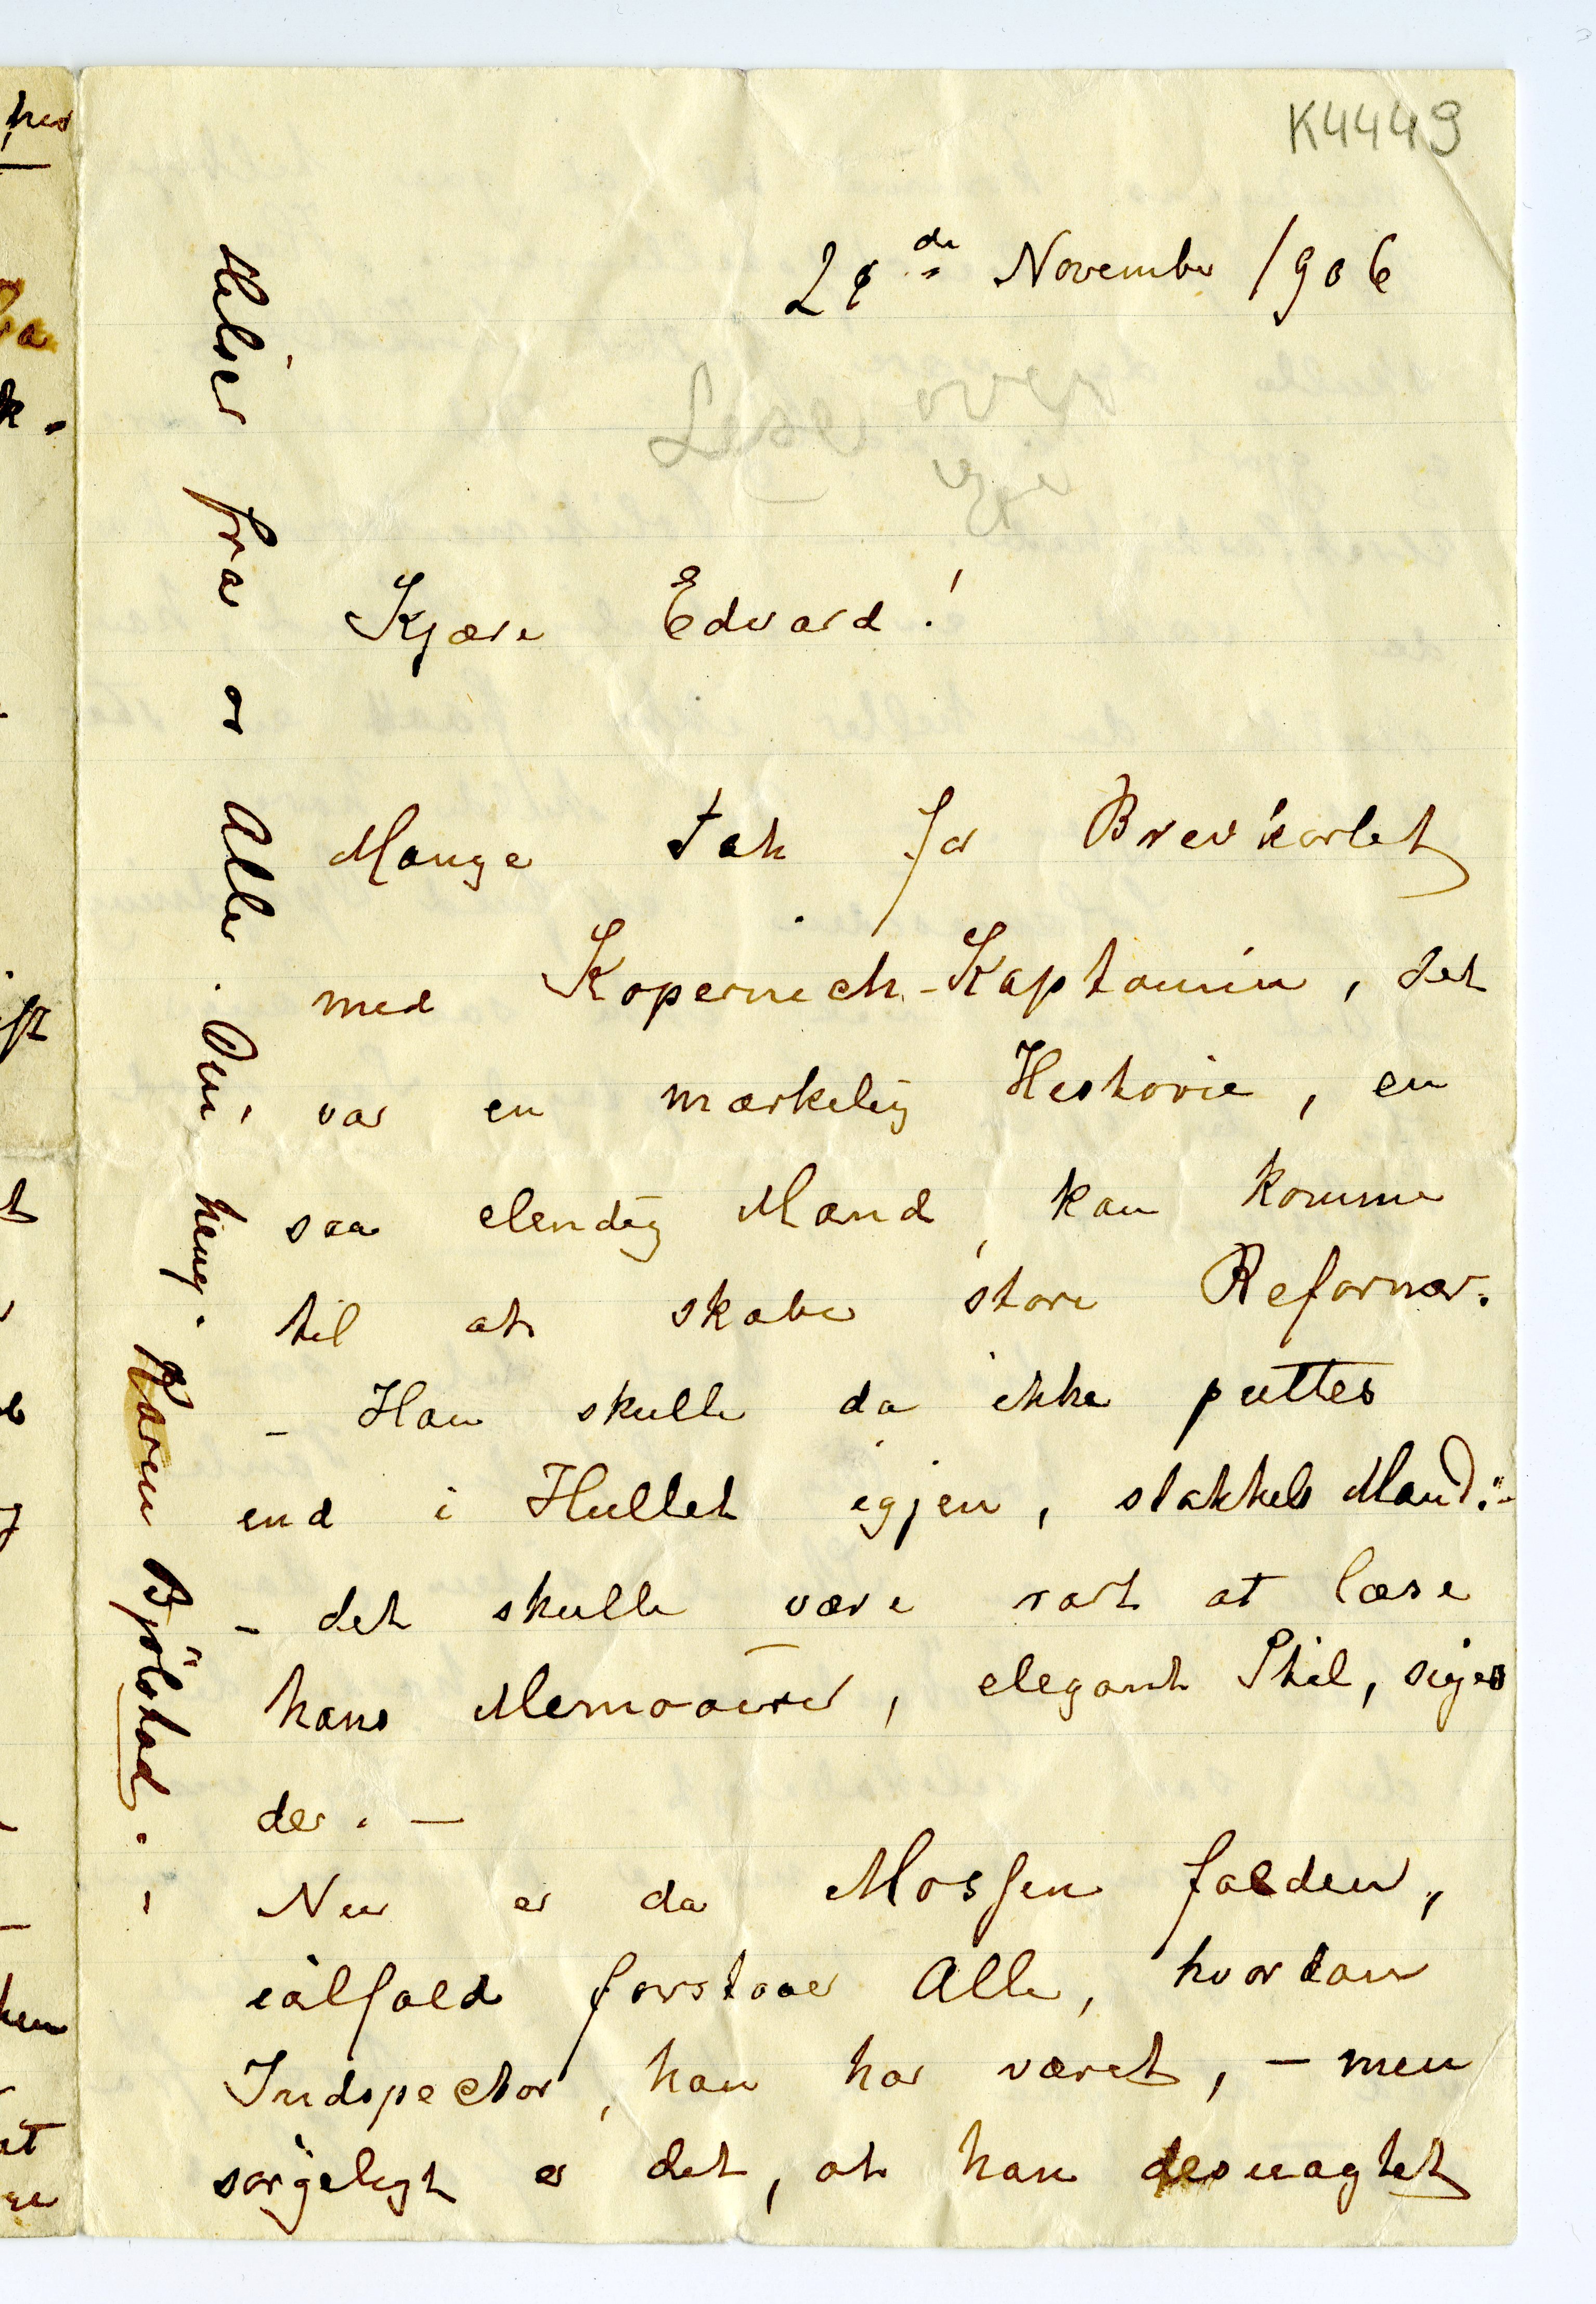 K4449
de November 1906
Lese over
Kjære Edvard!
Mange Tak for Brevkortet
med Kopernick-Kaptainin, det
var en mærkelig Historie, en
saa elendig Mand, kan komme
til at skabe store Reformer.
- Han skulle da ikke puttes
ind i Hullet igjen, stakkels Mand.-
- det skulle være rart at læse
hans Memoairer, elegant Stil, siges
der. -
Nu er da Mossen falden,
ialfald forstaar Alle, hvordan
Indspector, han har været, - men
sørgeligt er det, at han desuagtet
Hilsen fra os Alle. Din heng. Karen Bjølstad. -